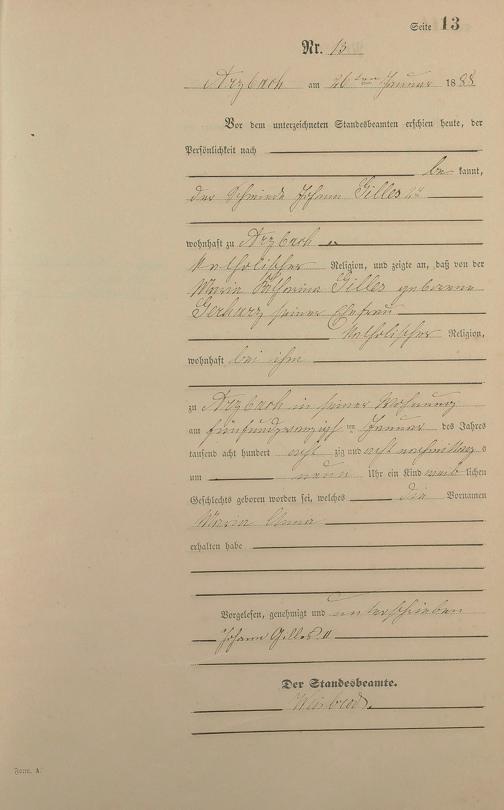 Seite 13
Nr. 13
Arzbach am 26ten Januar 1888
Vor dem unterzeichneten Standesbeamten erschien heute, der
Persönlichkeit nach
be kannt,
der Schmied Johann Gilles
wohnhaft zu Arzbach
katholischer Religion, und zeigte an, daß von der
Maria Catharina Gilles geborene
Gerharz seiner Ehefrau
katholischer Religion,
wohnhaft bei ihm
zu Arzbach in seiner Wohnung
am fünfundzwanzigsten Januar des Jahres
tausend acht hundert acht zig und acht nachmittags
um neun Uhr ein Kind weib lichen
Geschlechts geboren worden sei, welches die Vornamen
Maria Anna
erhalten habe
Vorgelesen, genehmigt und unterschrieben
Johann Gilles II
Der Standesbeamte.
Form. A.